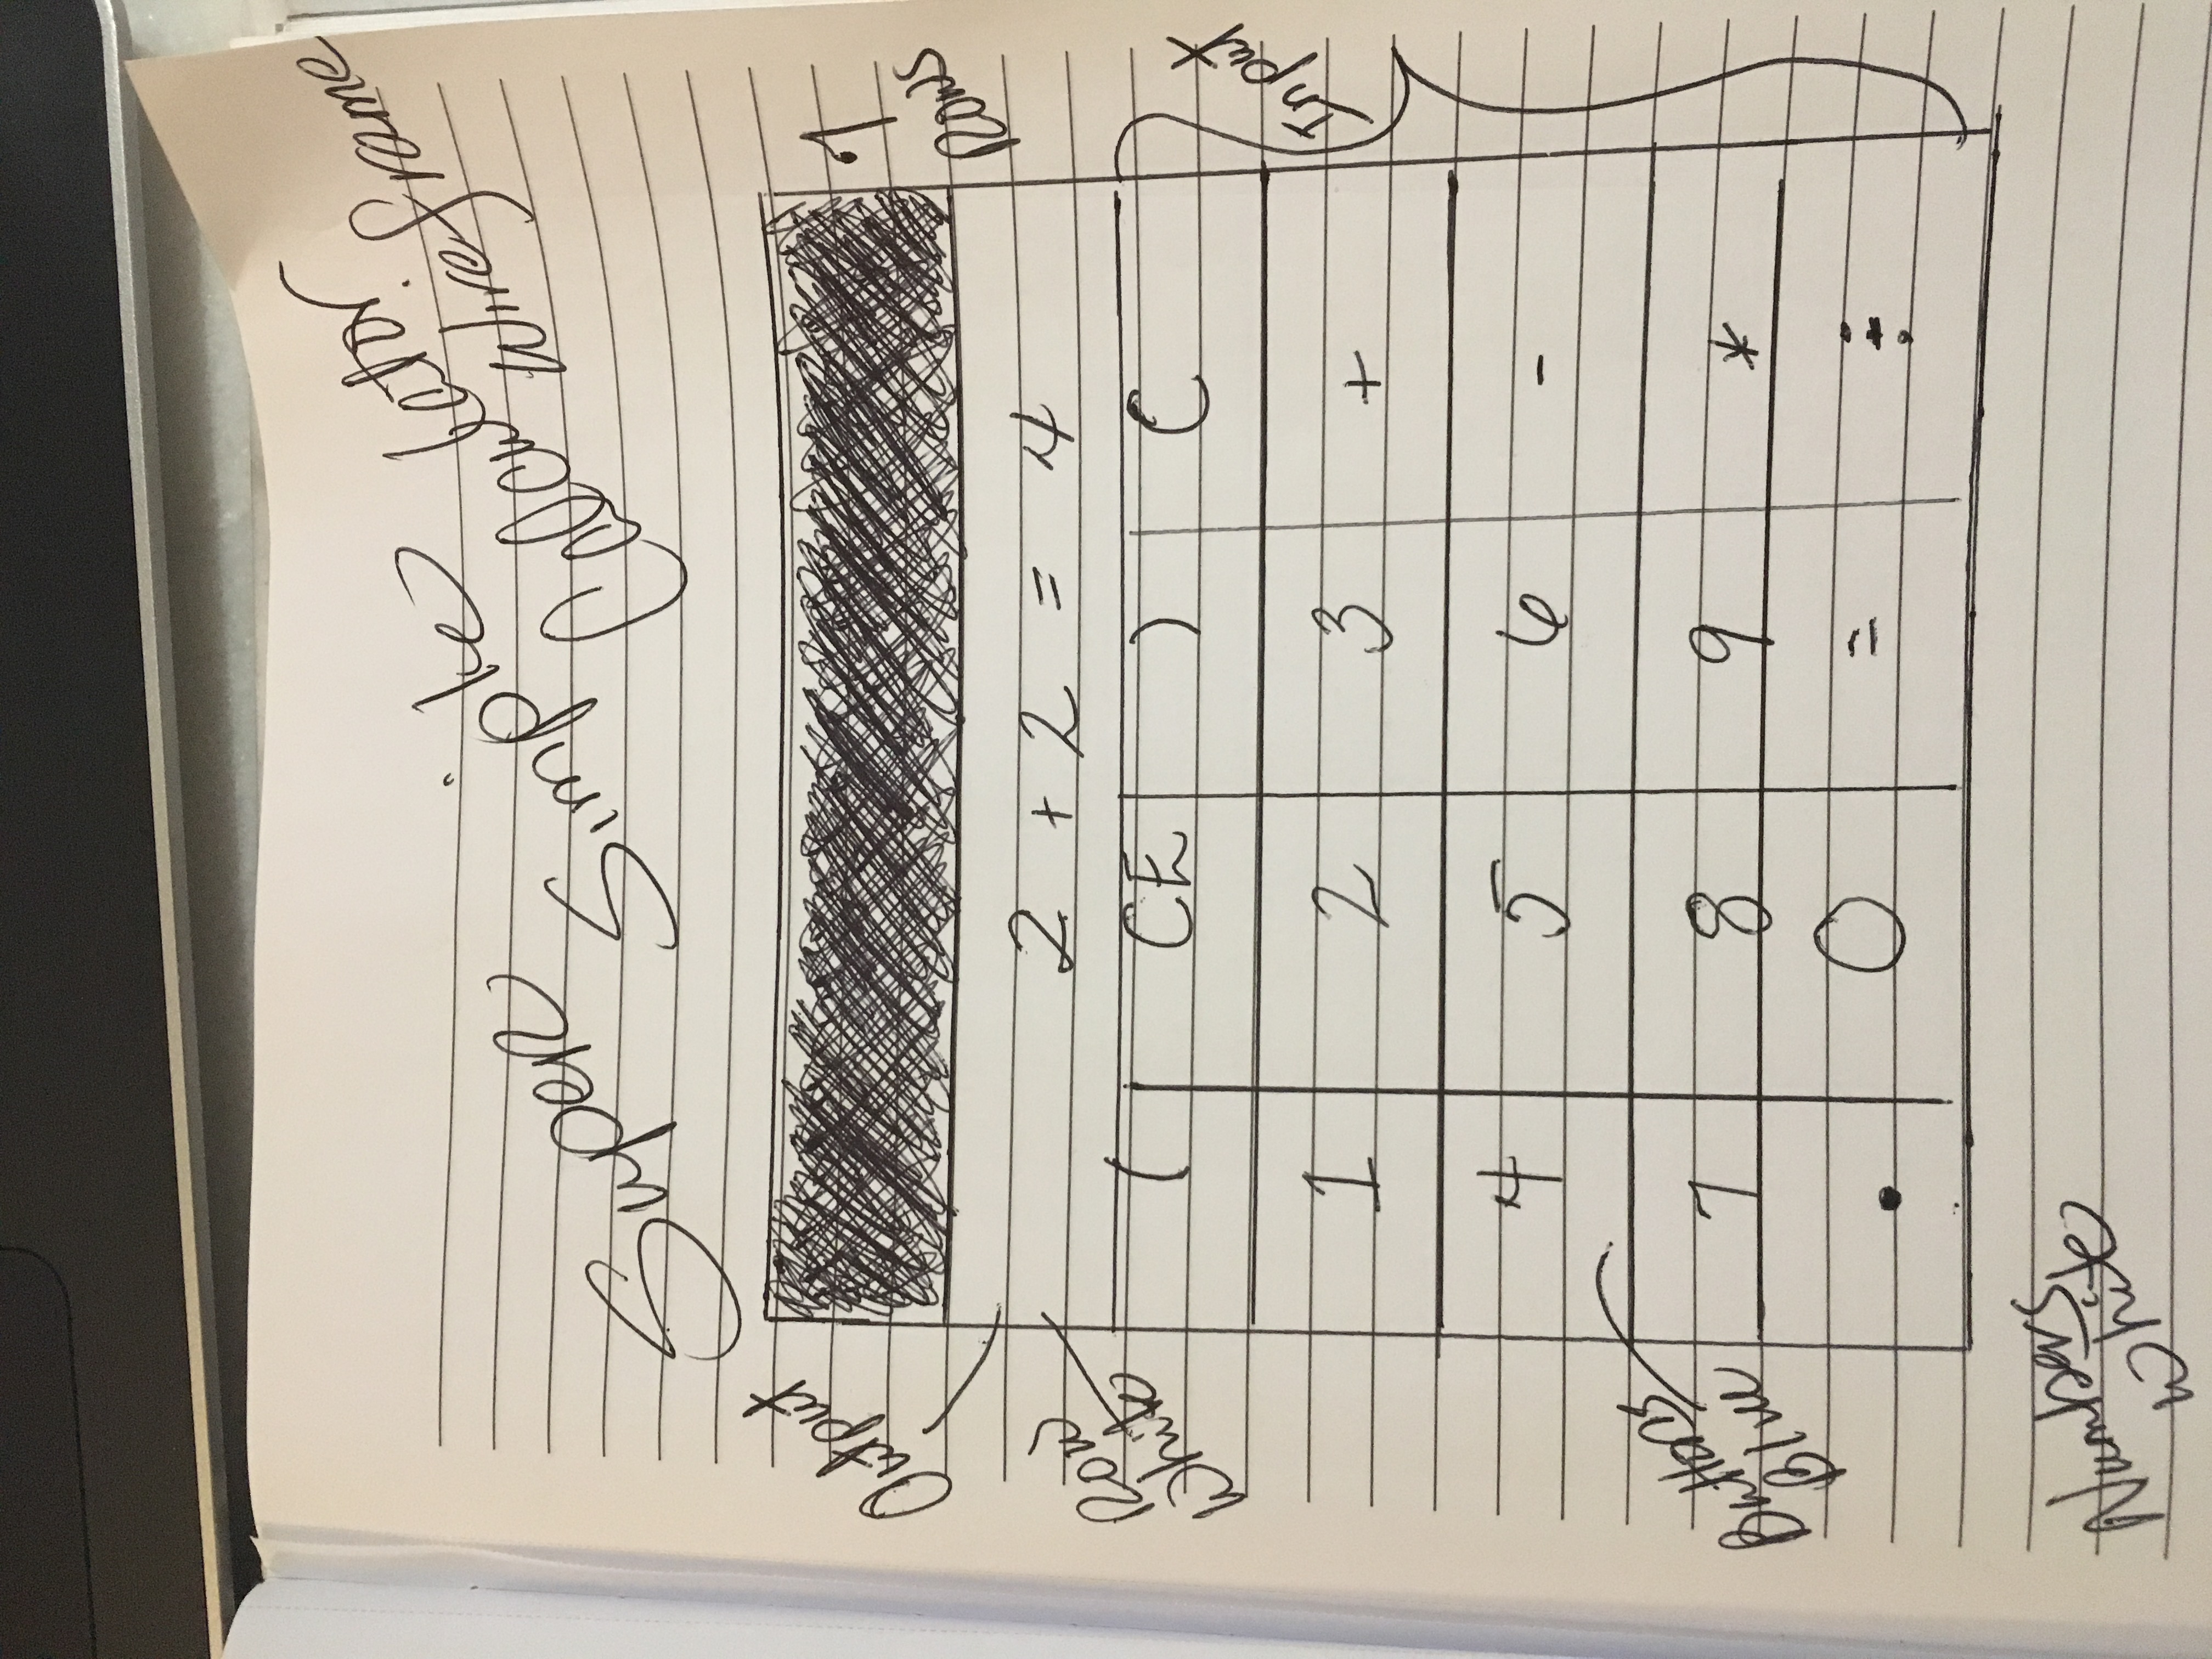 Super Simple Calculator
Wireframe
Output
7
Rows
Row
White
2 + 2 = 4
( CE ) C
Input
1 2 3 +
4 5 6 -
Buttons
Blue
7 8 9 *
. 0 = ÷
Numbers
White